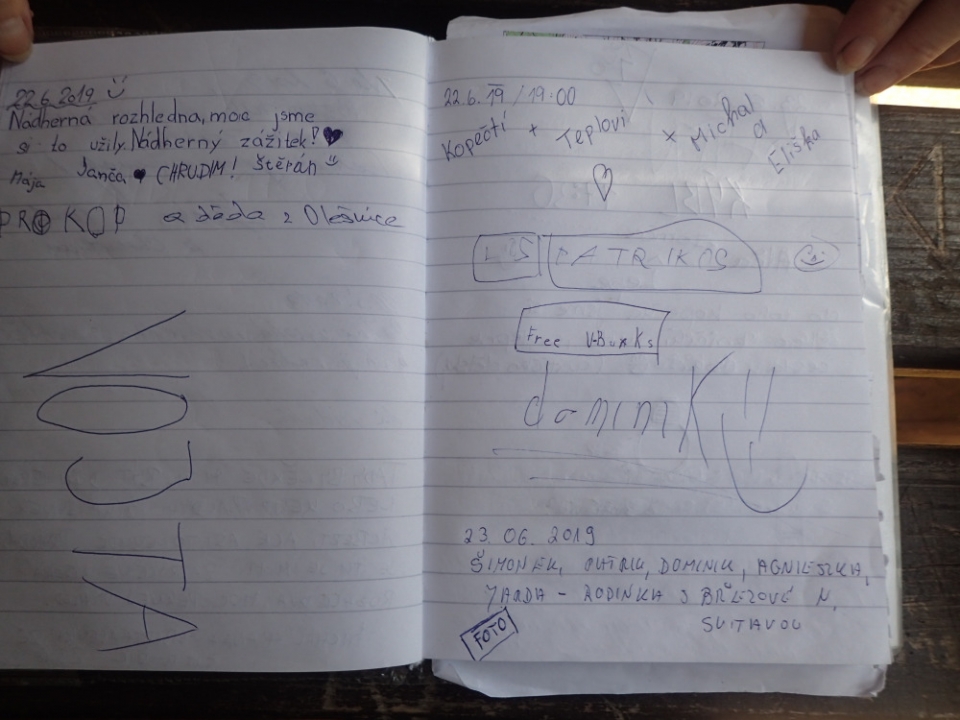 22.6.2019
Nádherná rozhledna, moc jsme
si to užily. Nádherný zážitek!
Mája Janča CHRUDIM! Štěrán
PROKOP a děda z Olešnice
VOJTA
22.6.19 / 19:00
Kopečtí + Teplovi x Michal a Eliška
PATRIKOS
Free V-Buxks
dominik
23. 06. 2019
ŠIMONEK, PATRIK, DOMINIK, AGNIESZKA,
JARDA - RODINKA S BŘEZOVÉ N.
SVITAVOU
FOTO